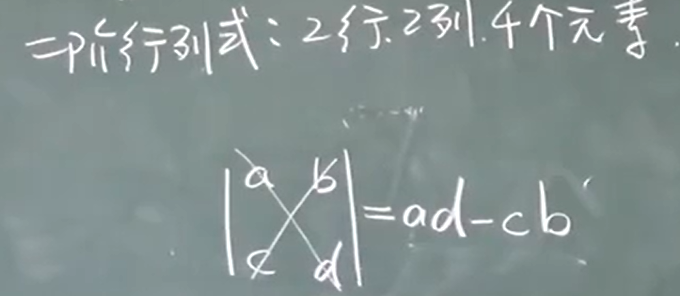 二阶行列式:2行.2列.4个元素.
|a b|
|c d|=ad-cb